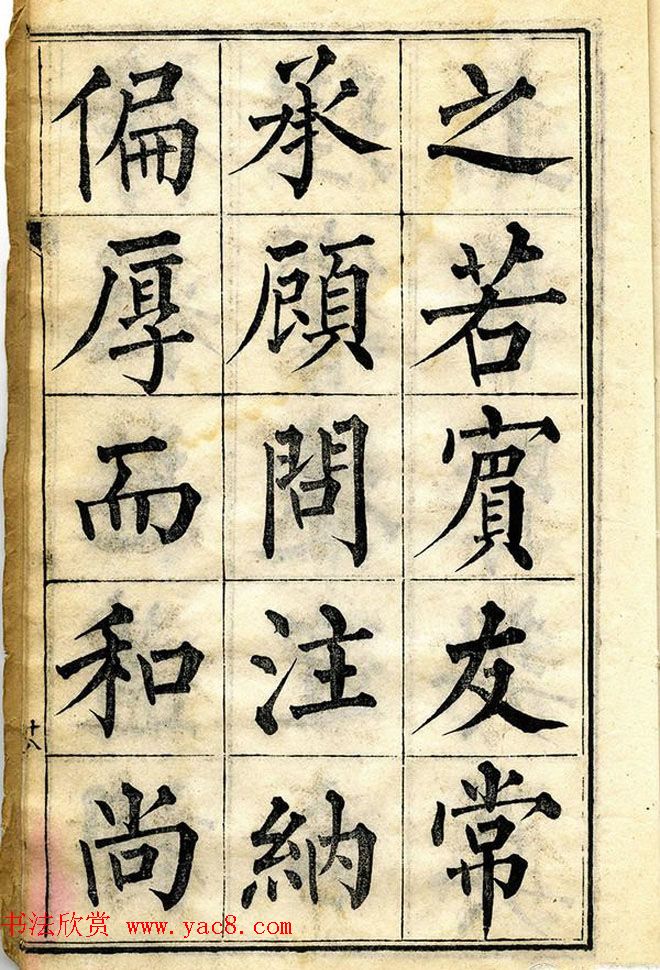 之若賓友常
承顧問注納
偏厚而和尚
十八
书法欣赏 www.yac8.com